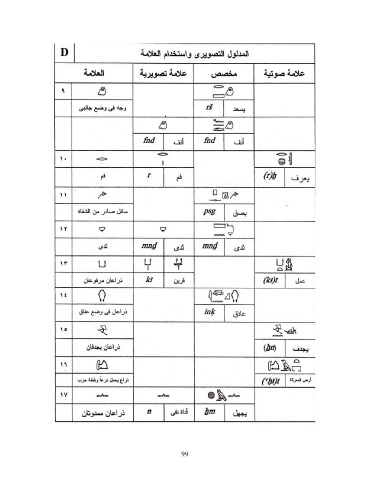 D المدلول التصويرى واستخدام العلامة
العلامة علامة تصويرية مخصص علامة صوتية
٩
وجه فى وضع جانبى rš يسعد
fnd أنف fnd أنف
١٠
فم r فم (r)ḫ يعرف
١١
سائل صادر من الشفاة psg بصق
١٢
ثدى mnḏ ثدى mnḏ ثدى
١٣
ذراعان مرفوعتان k3 قرين (k3)t عمل
١٤
ذراعان فى وضع عناق ink عانق
١٥
ذراعان يجدفان (ẖn) يجدف
١٦
(ꜥḥ3)t
١٧
ذراعان ممدوتان n أداة نفى ḫm يجهل
99